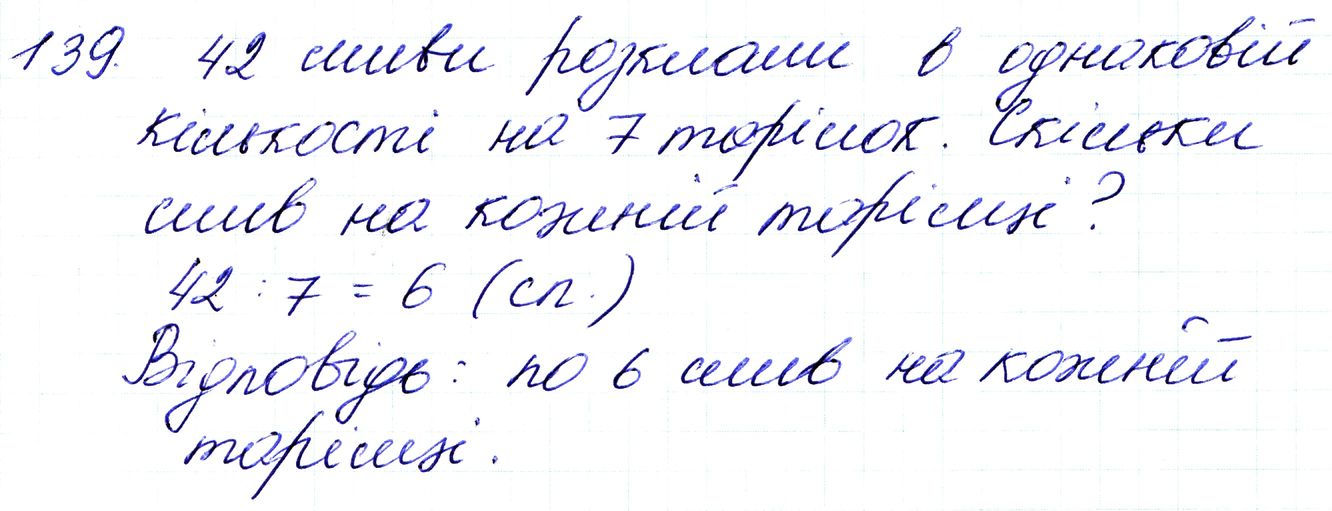 139. 42 сливи розклали в однаковій
кількості на 7 тарілок. Скільки
слив на кожній тарілці?
42 : 7 = 6 (сл.)
Відповідь: по 6 слив на кожній
тарілці.